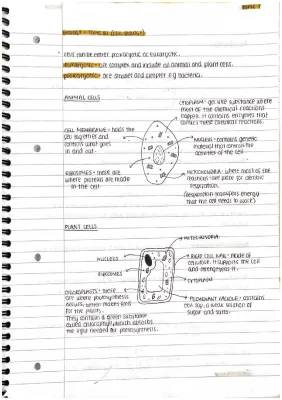 BIOLOGY - TOPIC B1 (CELL BIOLOGY)
cells can be either prokaryotic or eukaryotic.
eukaryotic - are complex and include all animal and plant cells.
prokaryotic - are smaller and simpler e.g bacteria.
ANIMAL CELLS
CYTOPLASM - gel like substance where most
of the chemical reactions
happen. It contains enzymes that
control these chemical reactions.
CELL MEMBRANE - holds the
cell together and
controls what goes
in and out.
NUCLEUS - contains genetic
material that controls the
activities of the cell
RIBOSOMES - these are
where proteins are made
in the cell
MITOCHONDRIA - where most of the
reactions take place for aerobic
respiration.
(respiration transfers energy
that the cell needs to work)
PLANT CELLS
MITOCHONDRIA
NUCLEUS
RIGID CELL WALL - made of
cellulose. It supports the cell
and strengthens it.
RIBOSOMES
CYTOPLASM
CHLOROPLASTS - these
are where photosynthesis
occurs, which makes food
for the plant.
They contain a green substance
called chlorophyll which absorbs
the light needed for photosynthesis.
PERMANENT VACUOLE - contains
cell sap, a weak solution of
sugar and salts.